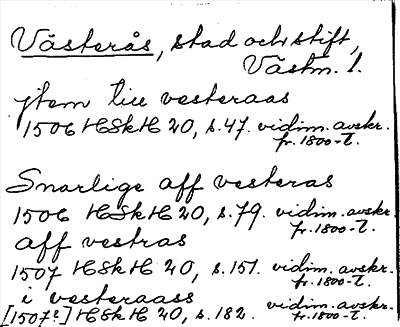 Västerås, stad och stift,
Västm. l.
jtem till vesteraas
1506 HSkH 20, s.47. vidim. avskr.
fr. 1800-t.
Snarlige aff vesteras
1506 HSkH 20, s.79. vidim. avskr.
fr. 1800-t.
aff vestras
1507 HSkH 20, s.151. vidim. avskr.
fr. 1800-t.
i vesteraass
[1507?] HSkH 20, s.182. vidim. avskr.
fr. 1800-t.